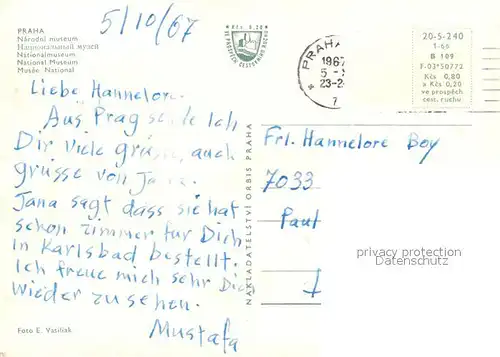 5/10/67
PRAHA
Národní museum
Национальный музей
Nationalmuseum
National Museum
Musée National
Kčs 0,20
VE PROSPĚCH CESTOVNÍHO RUCHU
PRAHA
1967
7
20-5-240
1-66
B 109
F-03*50772
Kčs 0,80
a Kčs 0,20
ve prospěch
cest. ruchu
Liebe Hannelore.
Aus Prag Ich
Dir viele grüsse, auch
grüsse von Jana.
Jana sagt dass sie hat
schon zimmer für Dich
in Karlsbad bestellt.
Ich freue mich sehr Dich
wieder zu sehen.
Mustafa
Foto E. Vasiliak
NAKLADATELSTVÍ ORBIS PRAHA
Frl. Hannelore Boy
7033
Paut
privacy protection
Datenschutz